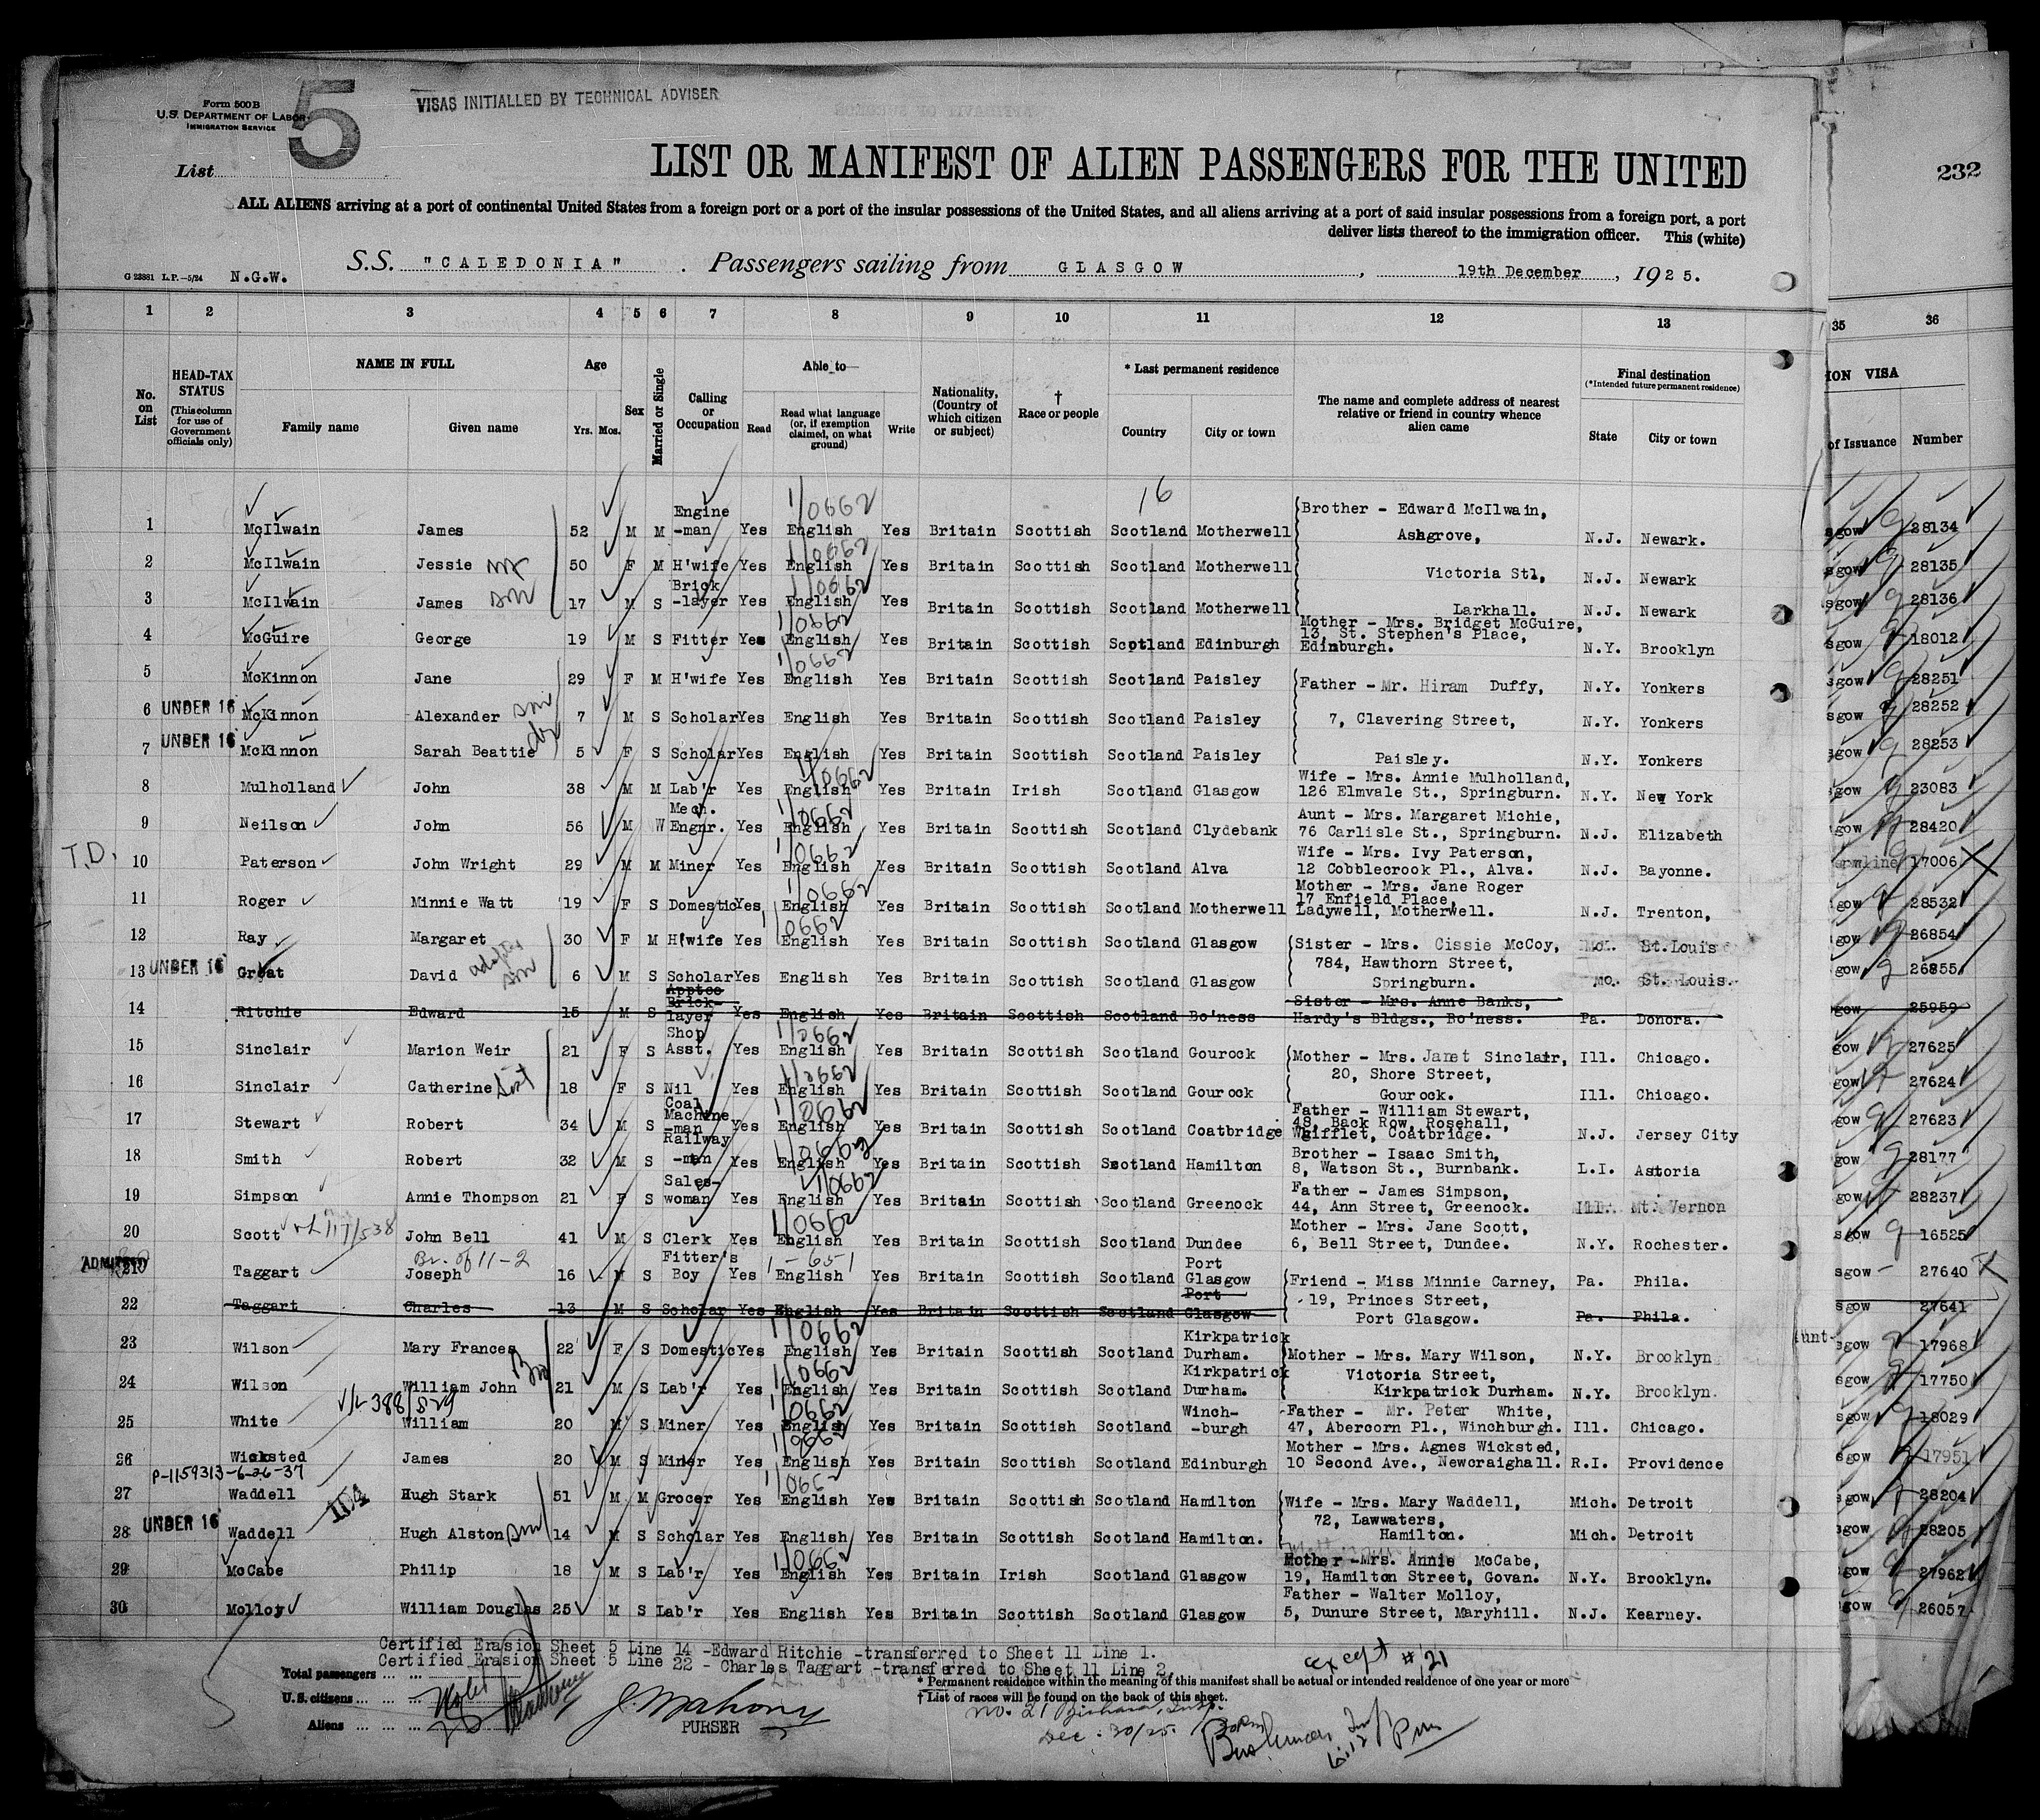 Form 500 B
U.S. DEPARTMENT OF LABOR
IMMIGRATION SERVICE
5
VISAS INITIALLED BY TECHNICAL ADVISER
List
LIST OR MANIFEST OF ALIEN PASSENGERS FOR THE UNITED
232
ALL ALIENS arriving at a port of continental United States from a foreign port or a port of the insular possessions of the United States, and all aliens arriving at a port of said insular possessions from a foreign port, a port
deliver lists thereof to the immigration officer. This (white)
G 23881 L.P.—5/24 N.G.W. S.S. "CALEDONIA" . Passengers sailing from GLASGOW , 19th December , 1925.
1 2 3 4 5 6 7 8 9 10 11 12 13 35 36
No. on List
HEAD-TAX STATUS (This column for use of Government officials only)
NAME IN FULL
Family name Given name
Age
Yrs. Mos.
Sex
Married or Single
Calling or Occupation
Able to—
Read Read what language (or, if exemption claimed, on what ground) Write
Nationality, (Country of which citizen or subject)
† Race or people
* Last permanent residence
Country City or town
The name and complete address of nearest relative or friend in country whence alien came
Final destination
(*Intended future permanent residence)
State City or town
ION VISA
of Issuance Number
16
1 McIlwain James 52 M M Engine -man Yes English Yes Britain Scottish Scotland Motherwell Brother - Edward McIlwain, Ashgrove, N.J. Newark. sgow 28134
2 McIlwain Jessie 50 F M H'wife Yes English Yes Britain Scottish Scotland Motherwell Victoria Stl, N.J. Newark sgow 28135
3 McIlwain James son 17 M S Brick -layer Yes English Yes Britain Scottish Scotland Motherwell Larkhall. N.J. Newark sgow 28136
4 McGuire George 19 M S Fitter Yes English Yes Britain Scottish Scotland Edinburgh Mother - Mrs. Bridget McGuire, 13, St. Stephen's Place, Edinburgh. N.Y. Brooklyn sgow 18012
5 McKinnon Jane 29 F M H'wife Yes English Yes Britain Scottish Scotland Paisley Father - Mr. Hiram Duffy, N.Y. Yonkers sgow 28251
6 UNDER 16 McKinnon Alexander son 7 M S Scholar Yes English Yes Britain Scottish Scotland Paisley 7, Clavering Street, N.Y. Yonkers sgow 28252
7 UNDER 16 McKinnon Sarah Beattie 5 F S Scholar Yes English Yes Britain Scottish Scotland Paisley Paisley. N.Y. Yonkers sgow 28253
8 Mulholland John 38 M M Lab'r Yes English Yes Britain Irish Scotland Glasgow Wife - Mrs. Annie Mulholland, 126 Elmvale St., Springburn. N.Y. New York sgow 23083
9 Neilson John 56 M W Mech. Engnr. Yes English Yes Britain Scottish Scotland Clydebank Aunt - Mrs. Margaret Michie, 76 Carlisle St., Springburn. N.J. Elizabeth gow 28420
T.D. 10 Paterson John Wright 29 M M Miner Yes English Yes Britain Scottish Scotland Alva Wife - Mrs. Ivy Paterson, 12 Cobblecrook Pl., Alva. N.J. Bayonne. 17006
11 Roger Minnie Watt 19 F S Domestic Yes English Yes Britain Scottish Scotland Motherwell Mother - Mrs. Jane Roger 17 Enfield Place, Ladywell, Motherwell. N.J. Trenton, gow 28532
12 Ray Margaret 30 F M H'wife Yes English Yes Britain Scottish Scotland Glasgow Sister - Mrs. Cissie McCoy, Mo. St.Louis gow 26854
13 UNDER 16 Great David adopted son 6 M S Scholar Yes English Yes Britain Scottish Scotland Glasgow 784, Hawthorn Street, Springburn. Mo. St. Louis. gow 26855
14 Ritchie Edward 15 M S Apptce Brick- layer Yes English Yes Britain Scottish Scotland Bo'ness Sister - Mrs. Anne Banks, Hardy's Bldgs., Bo'ness. Pa. Donora. gow 25959
15 Sinclair Marion Weir 21 F S Shop Asst. Yes English Yes Britain Scottish Scotland Gourock Mother - Mrs. Janet Sinclair, Ill. Chicago. gow 27625
16 Sinclair Catherine 18 F S Nil Yes English Yes Britain Scottish Scotland Gourock 20, Shore Street, Gourock. Ill. Chicago. gow 27624
17 Stewart Robert 34 M S Coal Machine -man Yes English Yes Britain Scottish Scotland Coatbridge Father - William Stewart, 48, Back Row, Rosehall, Whifflet, Coatbridge. N.J. Jersey City gow 27623
18 Smith Robert 32 M S Railway -man Yes English Yes Britain Scottish Scotland Hamilton Brother - Isaac Smith, 8, Watson St., Burnbank. L.I. Astoria gow 28177
19 Simpson Annie Thompson 21 F S Sales- woman Yes English Yes Britain Scottish Scotland Greenock Father - James Simpson, 44, Ann Street, Greenock. Ill. Mt. Vernon gow 28237
20 Scott John Bell 41 M S Clerk Yes English Yes Britain Scottish Scotland Dundee Mother - Mrs. Jane Scott, 6, Bell Street, Dundee. N.Y. Rochester. sgow 16525
ADMITTED 21 Taggart Br. of 11-2 Joseph 16 M S Fitter's Boy Yes English Yes Britain Scottish Scotland Port Glasgow Friend - Miss Minnie Carney, Pa. Phila. sgow 27640
22 Taggart Charles 13 M S Scholar Yes English Yes Britain Scottish Scotland Port Glasgow 19, Princes Street, Port Glasgow. Pa. Phila. sgow 27641
23 Wilson Mary Frances 22 F S Domestic Yes English Yes Britain Scottish Scotland Kirkpatrick Durham. Mother - Mrs. Mary Wilson, N.Y. Brooklyn sgow 17968
24 Wilson William John Bro 21 M S Lab'r Yes English Yes Britain Scottish Scotland Kirkpatrick Durham. Victoria Street, Kirkpatrick Durham. N.Y. Brooklyn. sgow 17750
25 White William 20 M S Miner Yes English Yes Britain Scottish Scotland Winch- -burgh Father - Mr. Peter White, 47, Abercorn Pl., Winchburgh. Ill. Chicago. sgow 18029
26 Wicksted James 20 M S Miner Yes English Yes Britain Scottish Scotland Edinburgh Mother - Mrs. Agnes Wicksted, 10 Second Ave., Newcraighall. R.I. Providence sgow 17951
P-1159313-6-26-37
27 Waddell Hugh Stark 51 M M Grocer Yes English Yes Britain Scottish Scotland Hamilton Wife - Mrs. Mary Waddell, Mich. Detroit sgow 28204
28 UNDER 16 Waddell Hugh Alston son 14 M S Scholar Yes English Yes Britain Scottish Scotland Hamilton. 72, Lawwaters, Hamilton. Mich. Detroit sgow 28205
29 McCabe Philip 18 M S Lab'r Yes English Yes Britain Irish Scotland Glasgow Mother -Mrs. Annie McCabe, 19, Hamilton Street, Govan. N.Y. Brooklyn. sgow 27962
30 Molloy William Douglas 25 M S Lab'r Yes English Yes Britain Scottish Scotland Glasgow Father - Walter Molloy, 5, Dunure Street, Maryhill. N.J. Kearney. sgow 26057
Certified Erasion Sheet 5 Line 14 -Edward Ritchie -transferred to Sheet 11 Line 1.
Certified Erasion Sheet 5 Line 22 - Charles Taggart -transferred to Sheet 11 Line 2.
except #21
Total passengers
* Permanent residence within the meaning of this manifest shall be actual or intended residence of one year or more
U.S. citizens
† List of races will be found on the back of this sheet.
Aliens
J. Mahony
PURSER
no. 21
Dec. 30/25